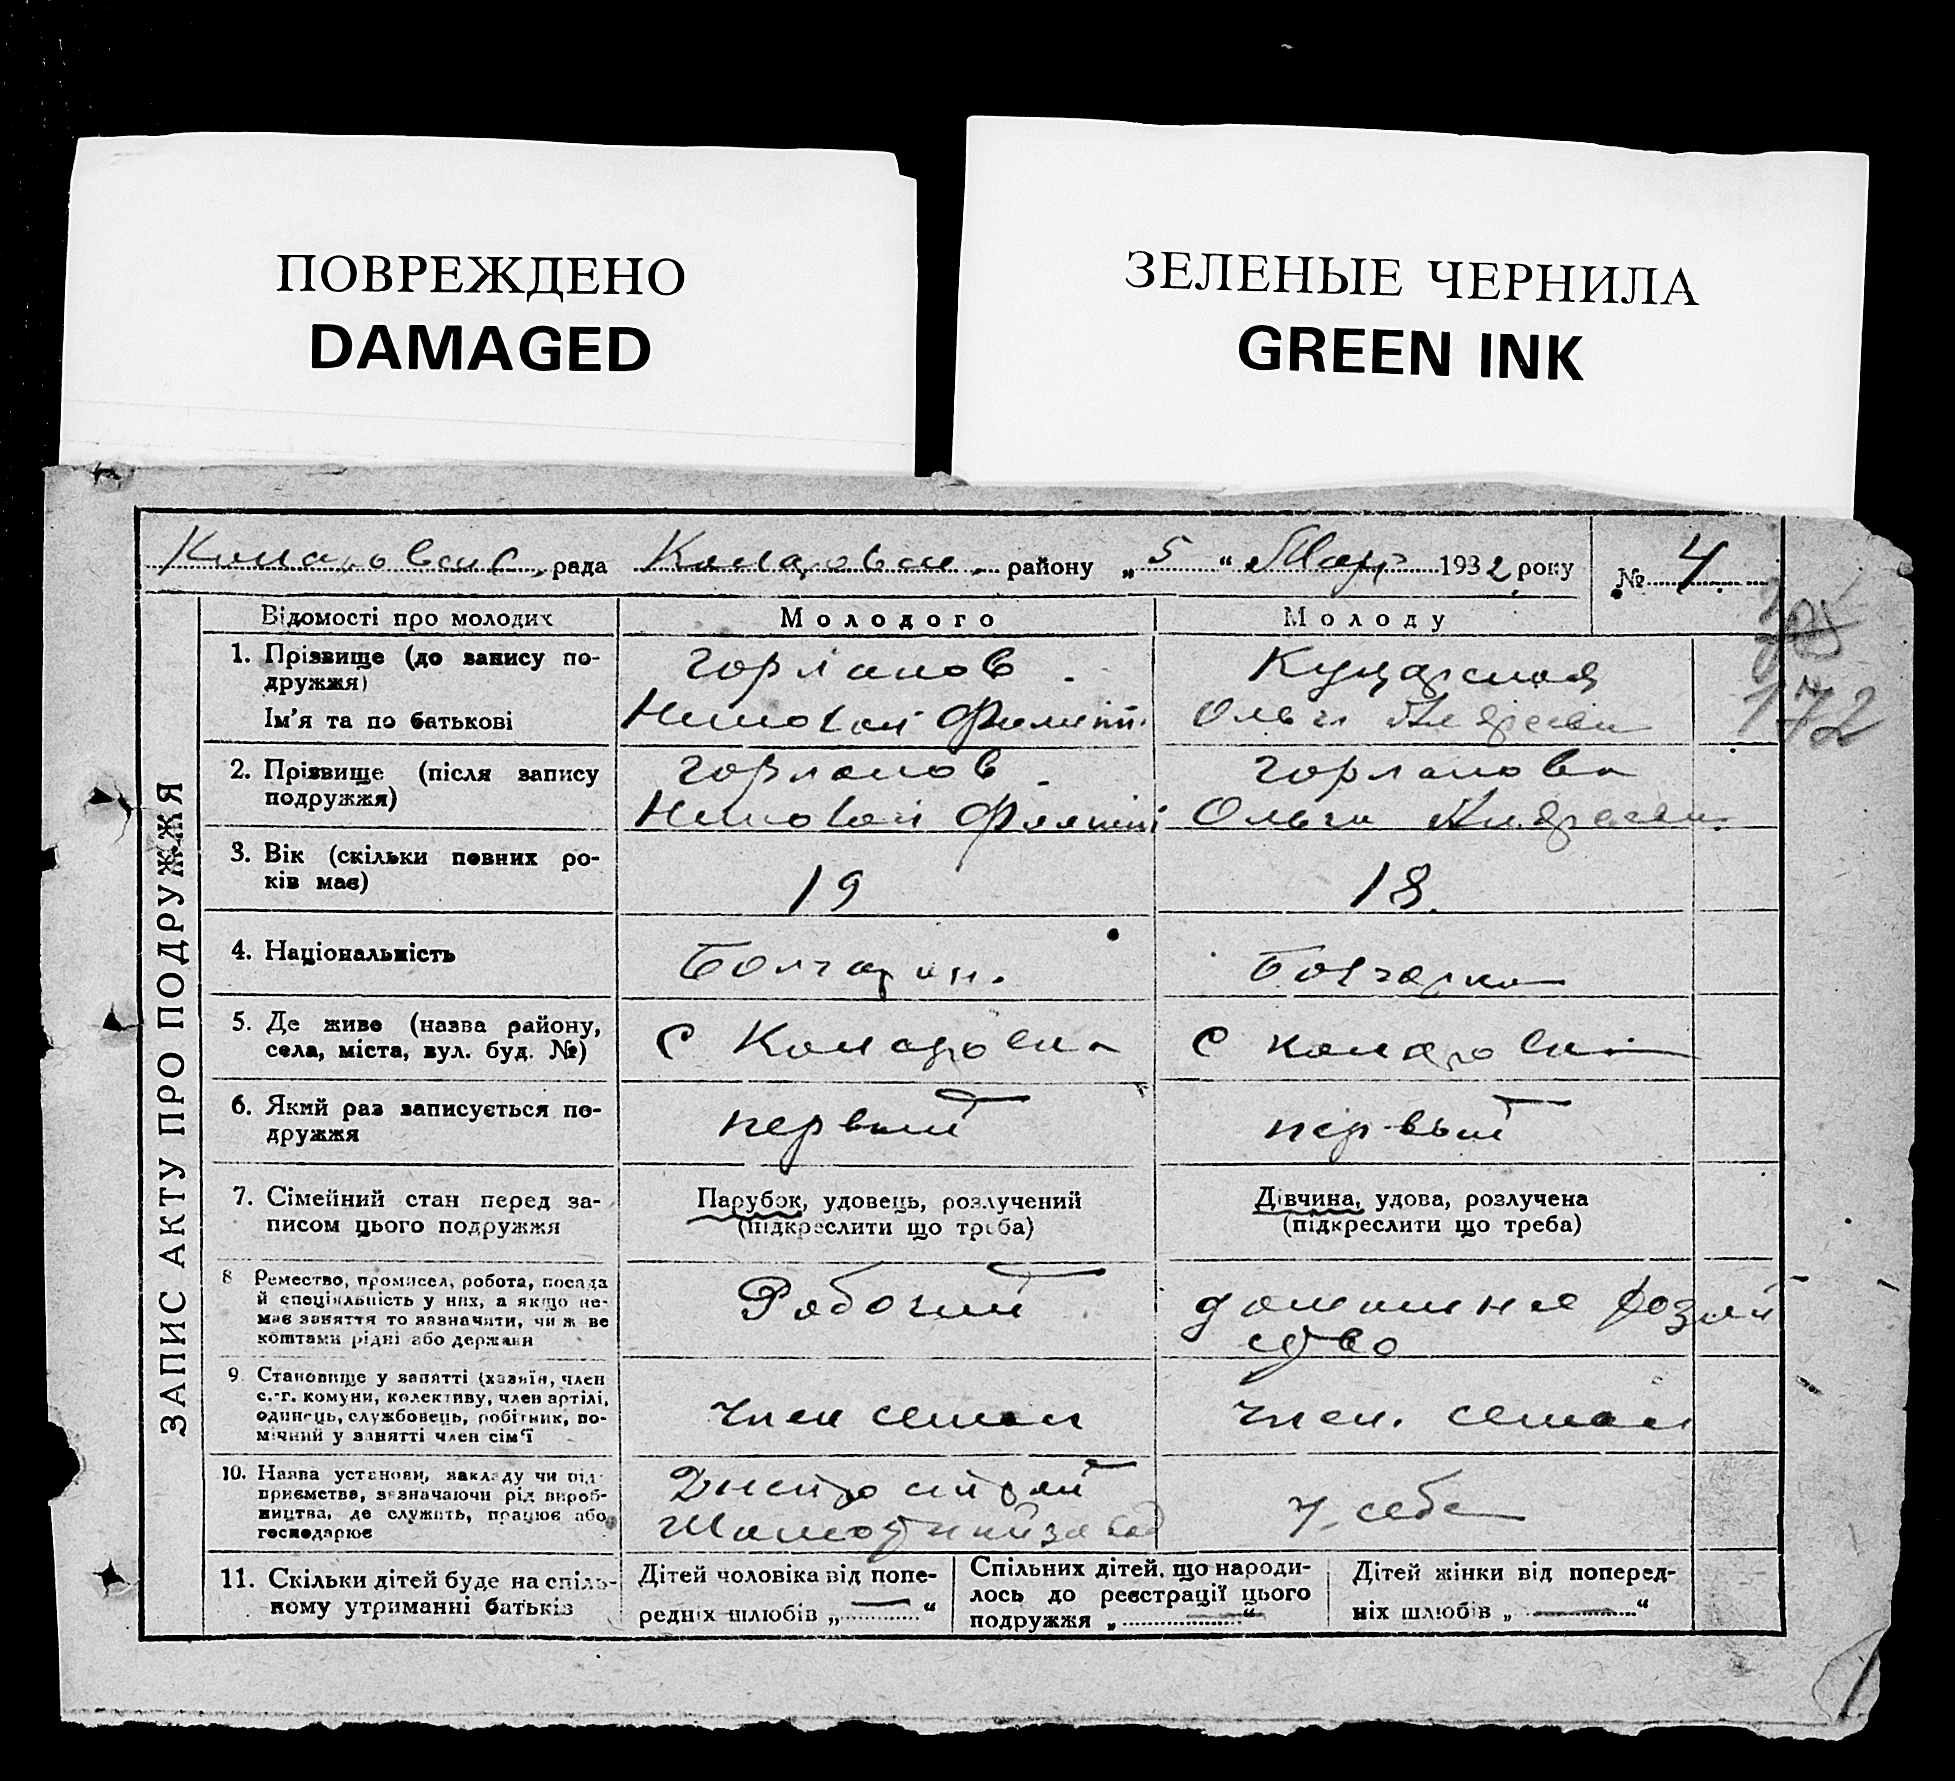 ПОВРЕЖДЕНО
DAMAGED
ЗЕЛЕНЫЕ ЧЕРНИЛА
GREEN INK
рада району „5“ Март 1932 року № 4.
172
ЗАПИС АКТУ ПРО ПОДРУЖЖЯ
Відомості про молодих Молодого Молоду
1. Прізвище (до запису по-
дружжя)
Горланов
Ім'я та по батькові
Николай Филипп. Ольга Андреевн
2. Прізвище (після запису
подружжя)
Горланов Горланова
Николай Филипп Ольга Андреевн.
3. Вік (скільки повних ро-
ків має)
19 18.
4. Національність
Болгарин. Болгарка
5. Де живе (назва району,
села, міста, вул. буд. №)
с Комаровка с Комаровка
6. Який раз записується по-
дружжя
первый первый
7. Сімейний стан перед за-
писом цього подружжя
Парубок, удовець, розлучений
(підкреслити що треба)
Дівчина, удова, розлучена
(підкреслити що треба)
8 Ремество, промисел, робота, посада
й спеціяльність у них, а якщо не-
має заняття то зазначити, чи ж ве
коштами рідні або держави
Рабочий
домашнее хозяй
ство
9. Становище у занятті (хазяїн, член
с.-г. комуни, колективу, член артілі,
одинець, службовець, робітник, по-
мічний у занятті член сім'ї
Член семьи Член. семьи
10. Назва установи, закладу чи під-
приємства, зазначаючи рід вироб-
ництва, де служить, працює або
господарює
Днепрострой
завод
У себе
11. Скільки дітей буде на спіль-
ному утриманні батьків
Дітей чоловіка від попе-
редніх шлюбів „—“
Спільних дітей, що народи-
лось до реєстрації цього
подружжя „—“
Дітей жінки від поперед-
ніх шлюбів „—“